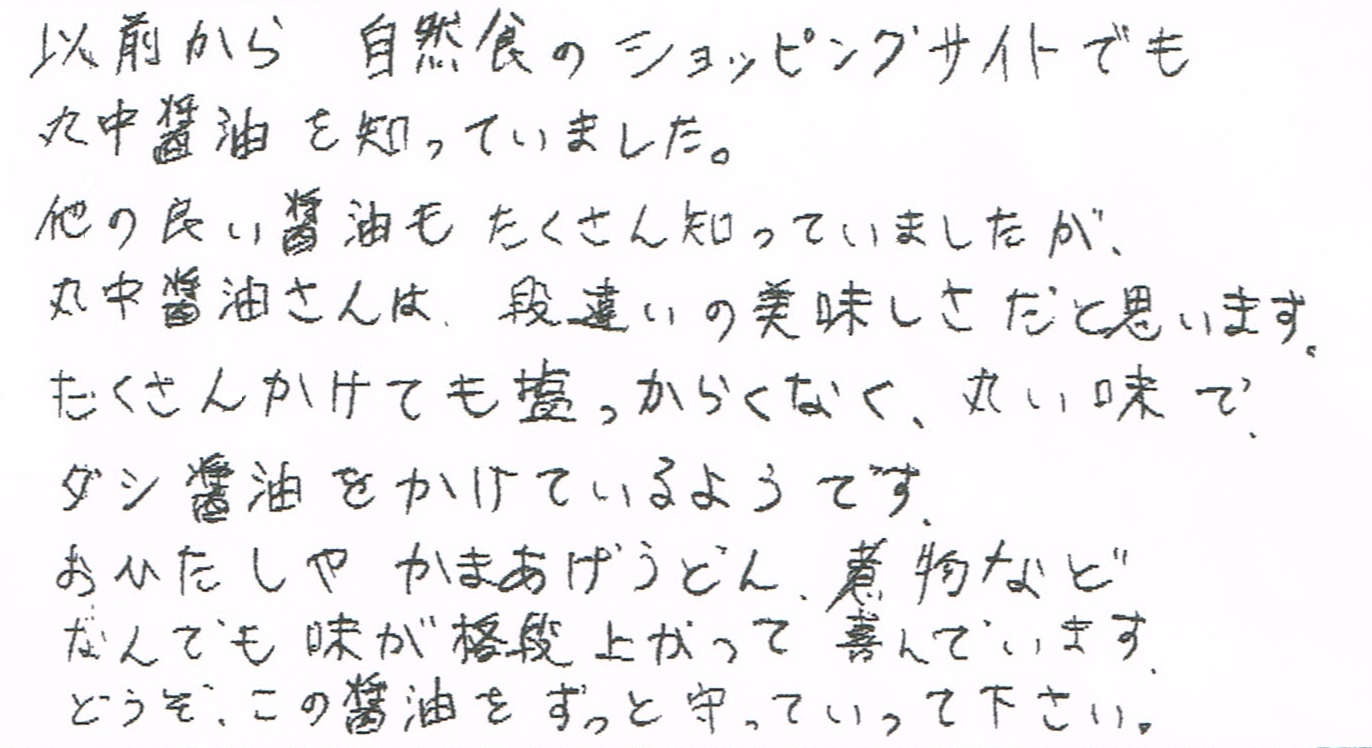 以前から 自然食のショッピングサイトでも
丸中醤油を知っていました。
他の良い醤油もたくさん知っていましたが、
丸中醤油さんは、段違いの美味しさだと思います。
たくさんかけても塩っからくなく、丸い味で、
ダシ醤油をかけているようです、
おひたしや かまあげうどん、煮物など
なんでも味が格段上がって喜んでいます、
どうぞ、この醤油をずっと守っていって下さい。